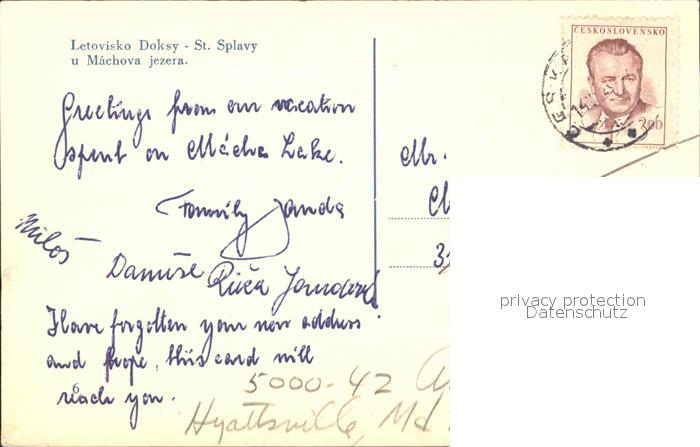 Letovisko Doksy - St. Splavy
u Máchova jezera.
Greetings from our vacation
spent on Mácha Lake.
Family Janda
Miloš
Danuše Růža Jandová
I have forgotten your new address
and hope, this card will
reach you.
6
Mr.
ČESKOSLOVENSKO
3.00
5000-42
Hyattsville, Md
privacy protection
Datenschutz